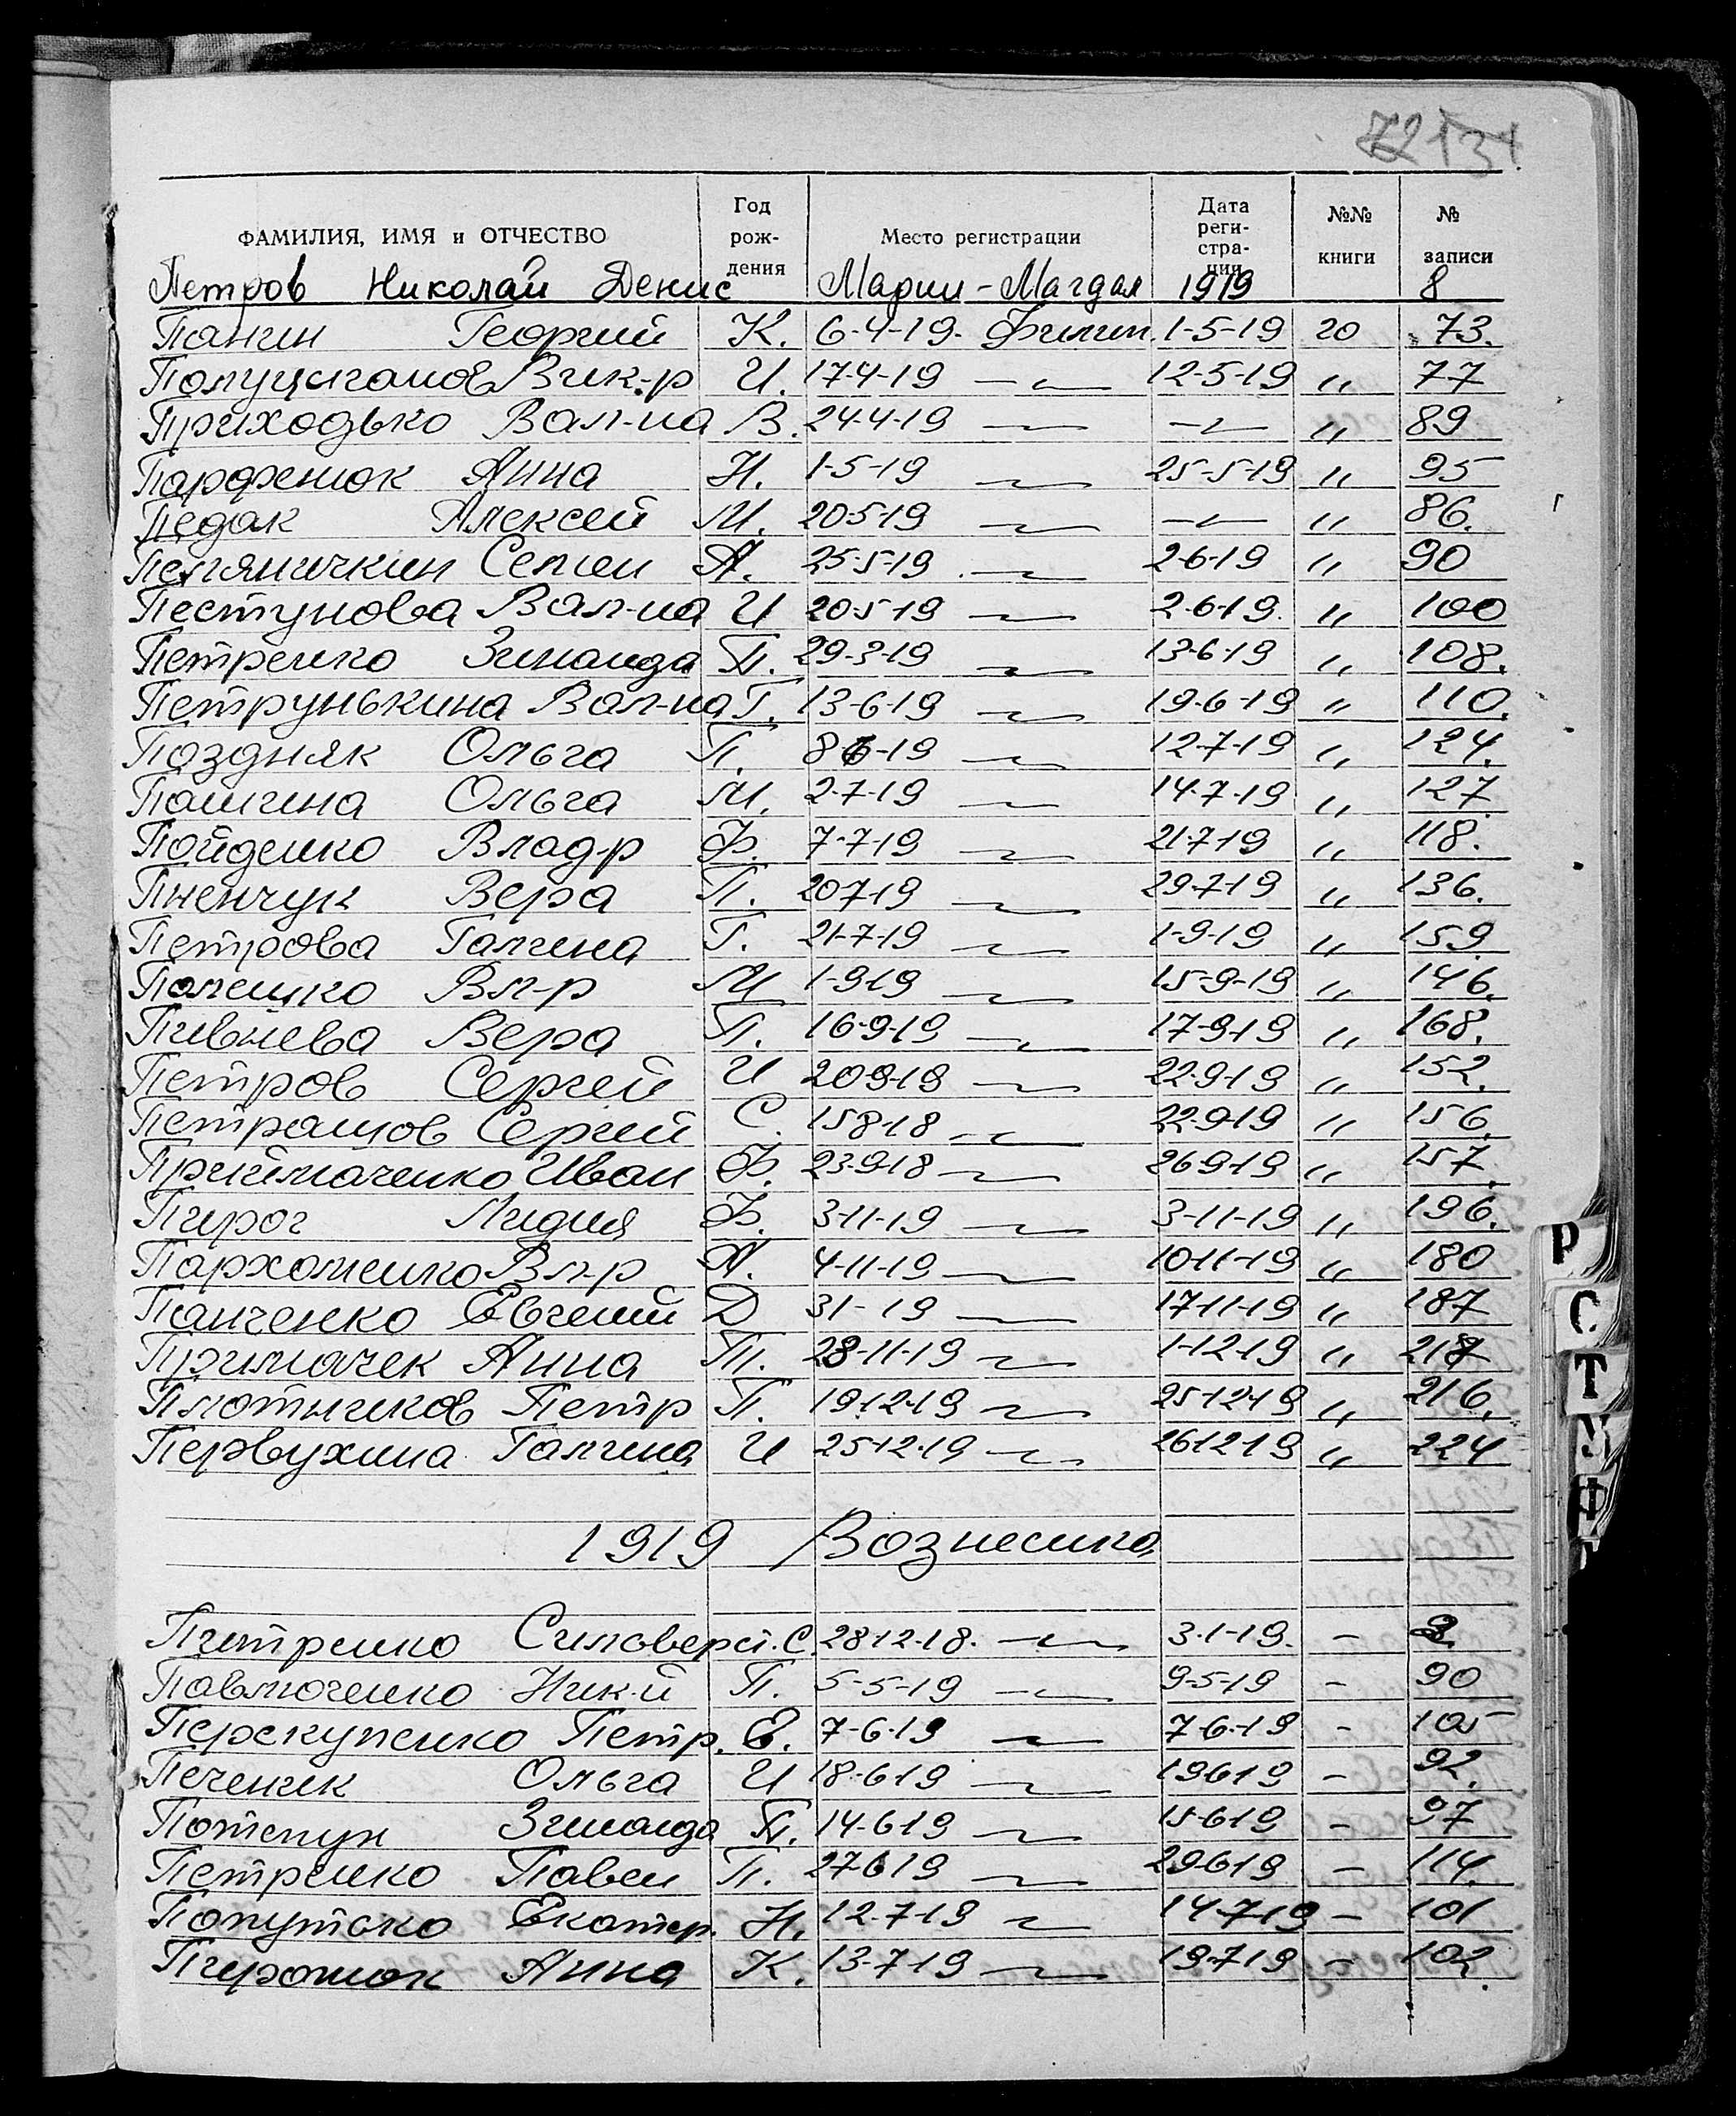 ФАМИЛИЯ, ИМЯ и ОТЧЕСТВО Год рож- дения Место регистрации Дата реги- стра- ции №№ книги № записи
Петров Николай Денис Марии-Магдал 1919 8
Панин Георгий К. 6-4-19. Филип. 1-5-19 20 73.
Полуцыганов Вик-р И. 17-4-19 —〃— 12-5-19 〃 77
Приходько Вал-на В. 24-4-19 —〃— —〃— 〃 89
Парфенюк Анна Н. 1-5-19 —〃— 25-5-19 〃 95
Педак Алексей М. 20-5-19 —〃— —〃— 〃 86.
Семен А. 25-5-19 —〃— 2-6-19 〃 90
Пестунова Вал-на И 20-5-19 —〃— 2-6-19. 〃 100
Петренко Зинаида П. 29-3-19 —〃— 13-6-19 〃 108.
Петрунькина Вал-на Г. 13-6-19 —〃— 19-6-19 〃 110.
Поздняк Ольга П. 8-6-19 —〃— 12-7-19 〃 124.
Ольга М. 2-7-19 —〃— 14-7-19 〃 127
Пойденко Влад-р Ф. 7-7-19 —〃— 21-7-19 〃 118.
Вера П. 20-7-19 —〃— 29-7-19 〃 136.
Петрова Галина Г. 21-7-19 —〃— 1-9-19 〃 159.
Вл-р М 1-9-19 —〃— 15-9-19 〃 146.
Пивнева Вера П. 16-9-19 —〃— 17-9-19 〃 168.
Петров Сергей И 20-9-19 —〃— 22-9-19 〃 152.
Петрашов Сергей С. 15-8-18 —〃— 22-9-19 〃 156.
Приймаченко Иван Ф. 23-9-18 —〃— 26-9-19 〃 157.
Пирог Лидия Ф. 3-11-19 —〃— 3-11-19 〃 196.
Пархоменко Вл-р А. 4-11-19 —〃— 10-11-19 〃 180
Панченко Евгений Д 31- 19 —〃— 17-11-19 〃 187
Примачек Анна Т. 28-11-19 —〃— 1-12-19 〃
Плотников Петр П. 19-12-19 —〃— 25-12-19 〃 216.
Первухина Галина И 25-12-19 —〃— 26-12-19 〃 224
1919 Вознесенка
Питренко Силоверст. С. 28-12-18. —〃— 3-1-19. —
Павлюченко Ник-й П. 5-5-19 —〃— 9-5-19 – 90
Перекупенко Петр. Е. 7-6-19 —〃— 7-6-19 – 105
Печеник Ольга И 18-6-19 —〃— 19-6-19 – 92.
Потепун Зинаида П. 14-6-19 —〃— 15-6-19 – 97
Петренко Павел П. 27-6-19 —〃— 29-6-19 – 114.
Екатер. Н. 12-7-19 —〃— 14-7-19 – 101
Пиронюк Анна К. 13-7-19 —〃— 19-7-19 – 102.
Р
С
Т
У
Ф